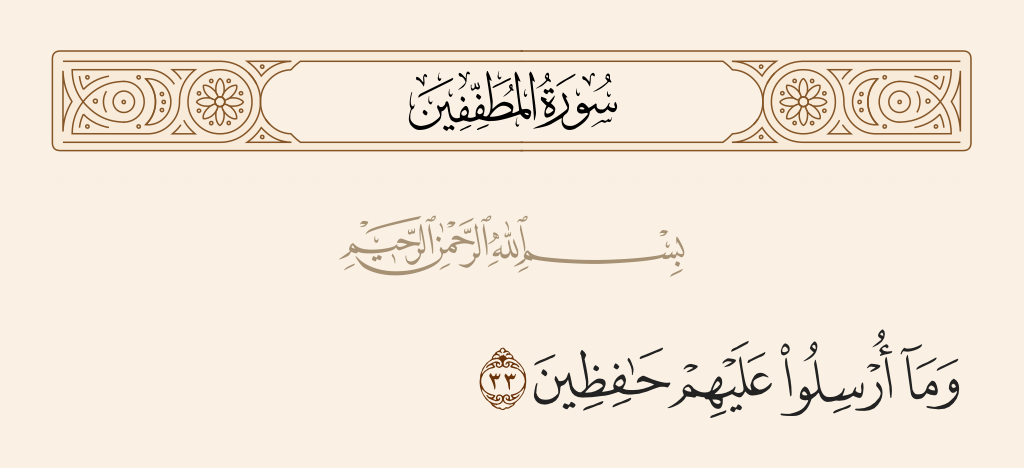 سُورَةُ المُطَفِّفِينَ
بِسْمِ ٱللَّهِ ٱلرَّحْمَٰنِ ٱلرَّحِيمِ
وَمَآ أُرْسِلُوا۟ عَلَيْهِمْ حَـٰفِظِينَ ٣٣